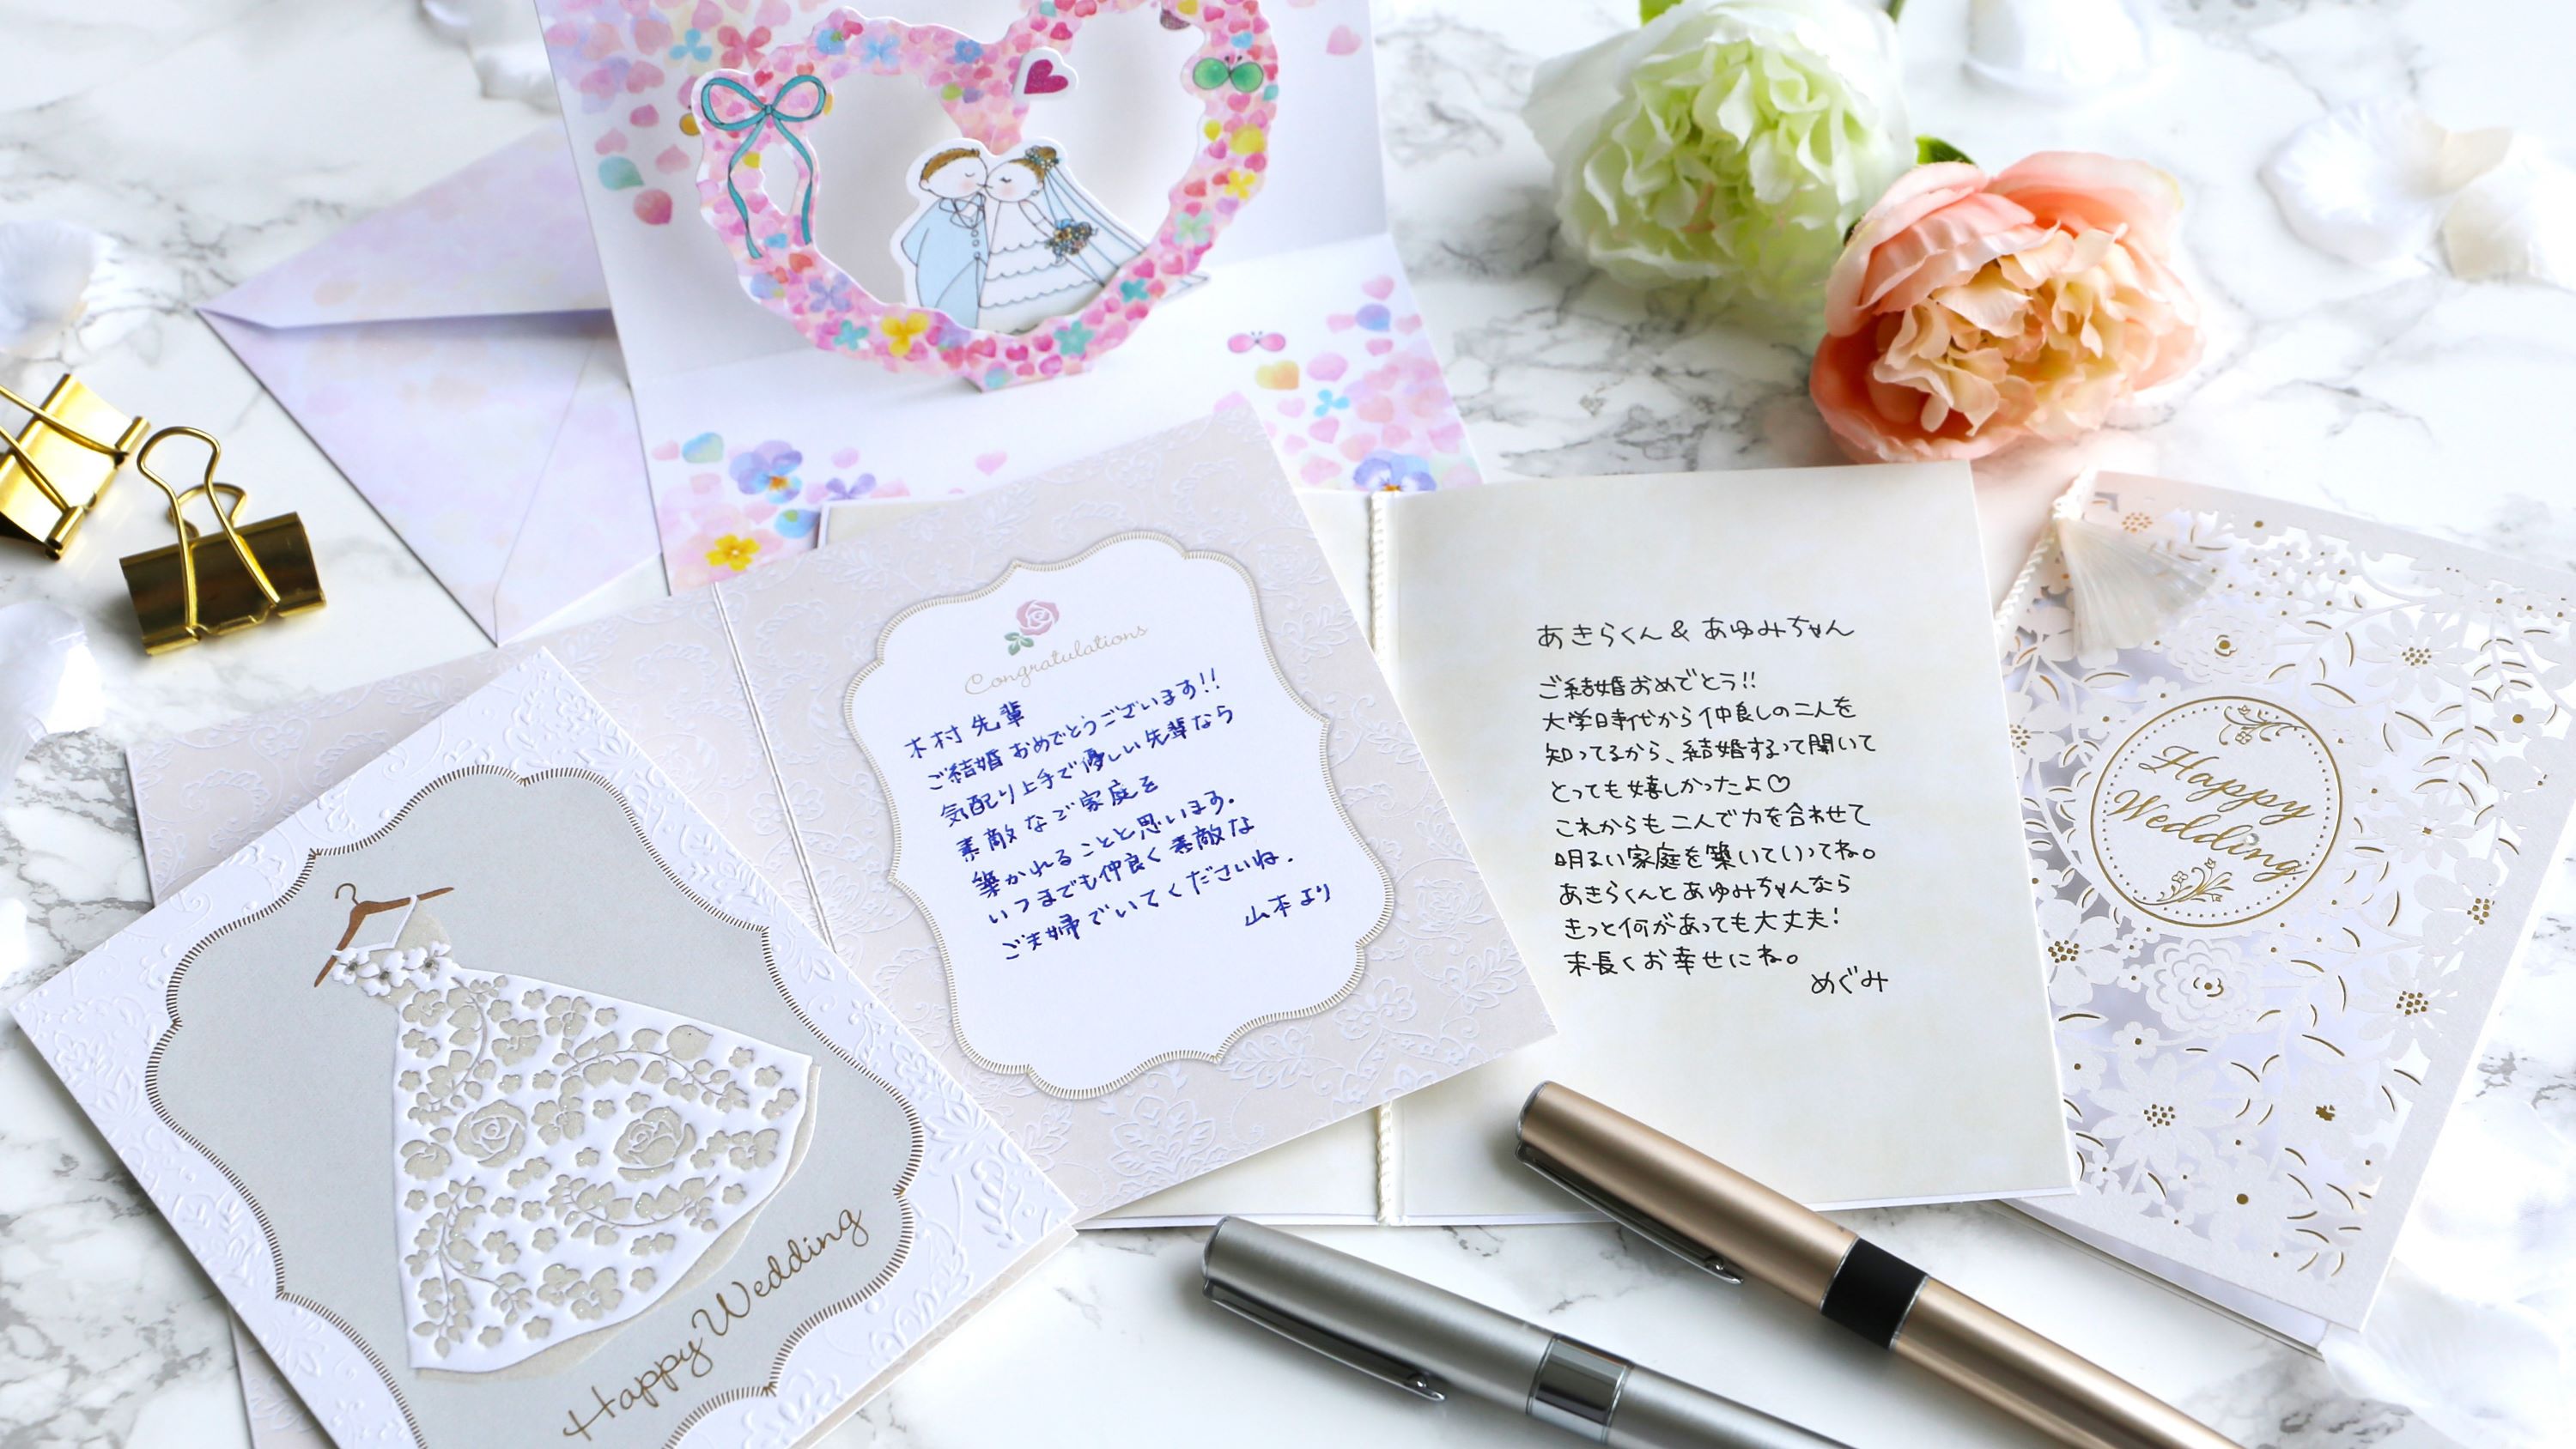 Congratulations
木村先輩
ご結婚おめでとうございます!!
気配り上手で優しい先輩なら
素敵なご家庭を
築かれることと思います.
いつまでも仲良く素敵な
ご夫婦でいてくださいね.
山本より
あきらくん & あゆみちゃん
ご結婚おめでとう!!
大学時代から仲良しの二人を
知ってるから、結婚するって聞いて
とっても嬉しかったよ♡
これからも二人で力を合わせて
明るい家庭を築いていってね。
あきらくんとあゆみちゃんなら
きっと何があっても大丈夫!
末長くお幸せにね。
めぐみ
Happy
Wedding
Happy Wedding